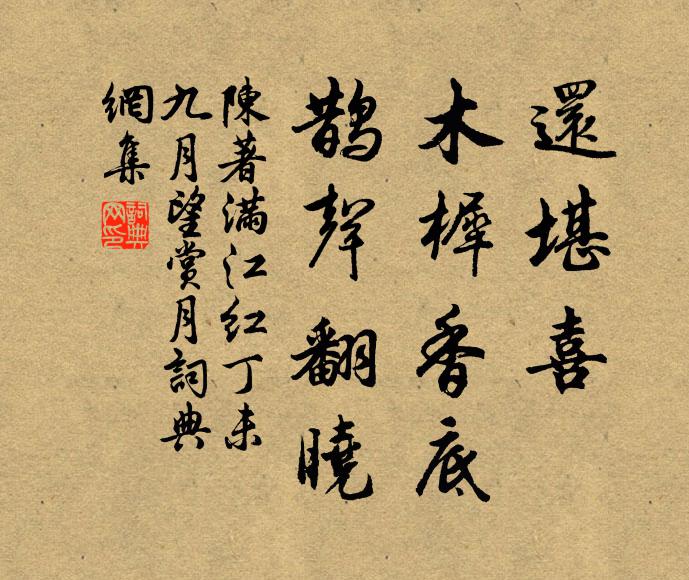 還堪喜
木樨香底
鹊聲翻曉
陳著滿江紅丁未
九月望賞月詞典
網集
詞典
网印